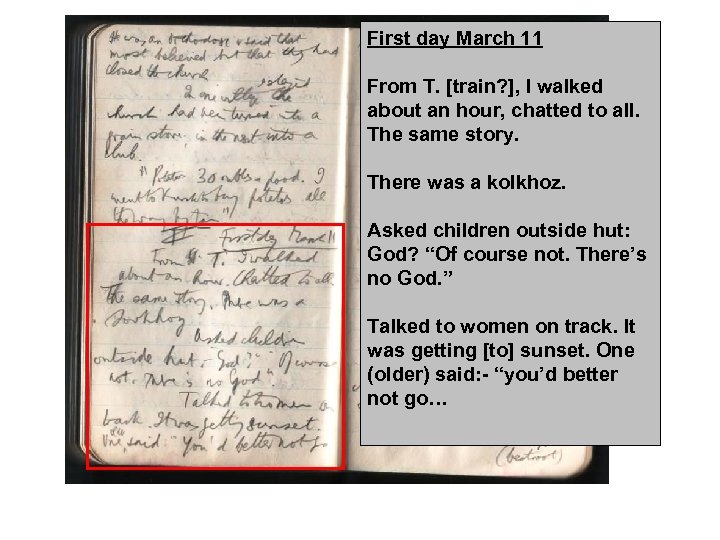 It was an orthodox & said that
most believed but that they had
closed the church
In one village the
church had been turned into a
grain store, in the next into a
club.
30 roubles a pood. I
went to to buy potatoes all
the way
First day March 11
From T. I walked
about an hour. Chatted to all.
The same story. There was a
Asked children
outside hut:- God? "Of course
not. There's no God".
Talked to women on
track. It was getting sunset.
One, said:- "You'd better not go
(beetroot)
First day March 11
From T. [train?], I walked
about an hour, chatted to all.
The same story.
There was a kolkhoz.
Asked children outside hut:
God? “Of course not. There’s
no God.”
Talked to women on track. It
was getting [to] sunset. One
(older) said:- “you’d better
not go…